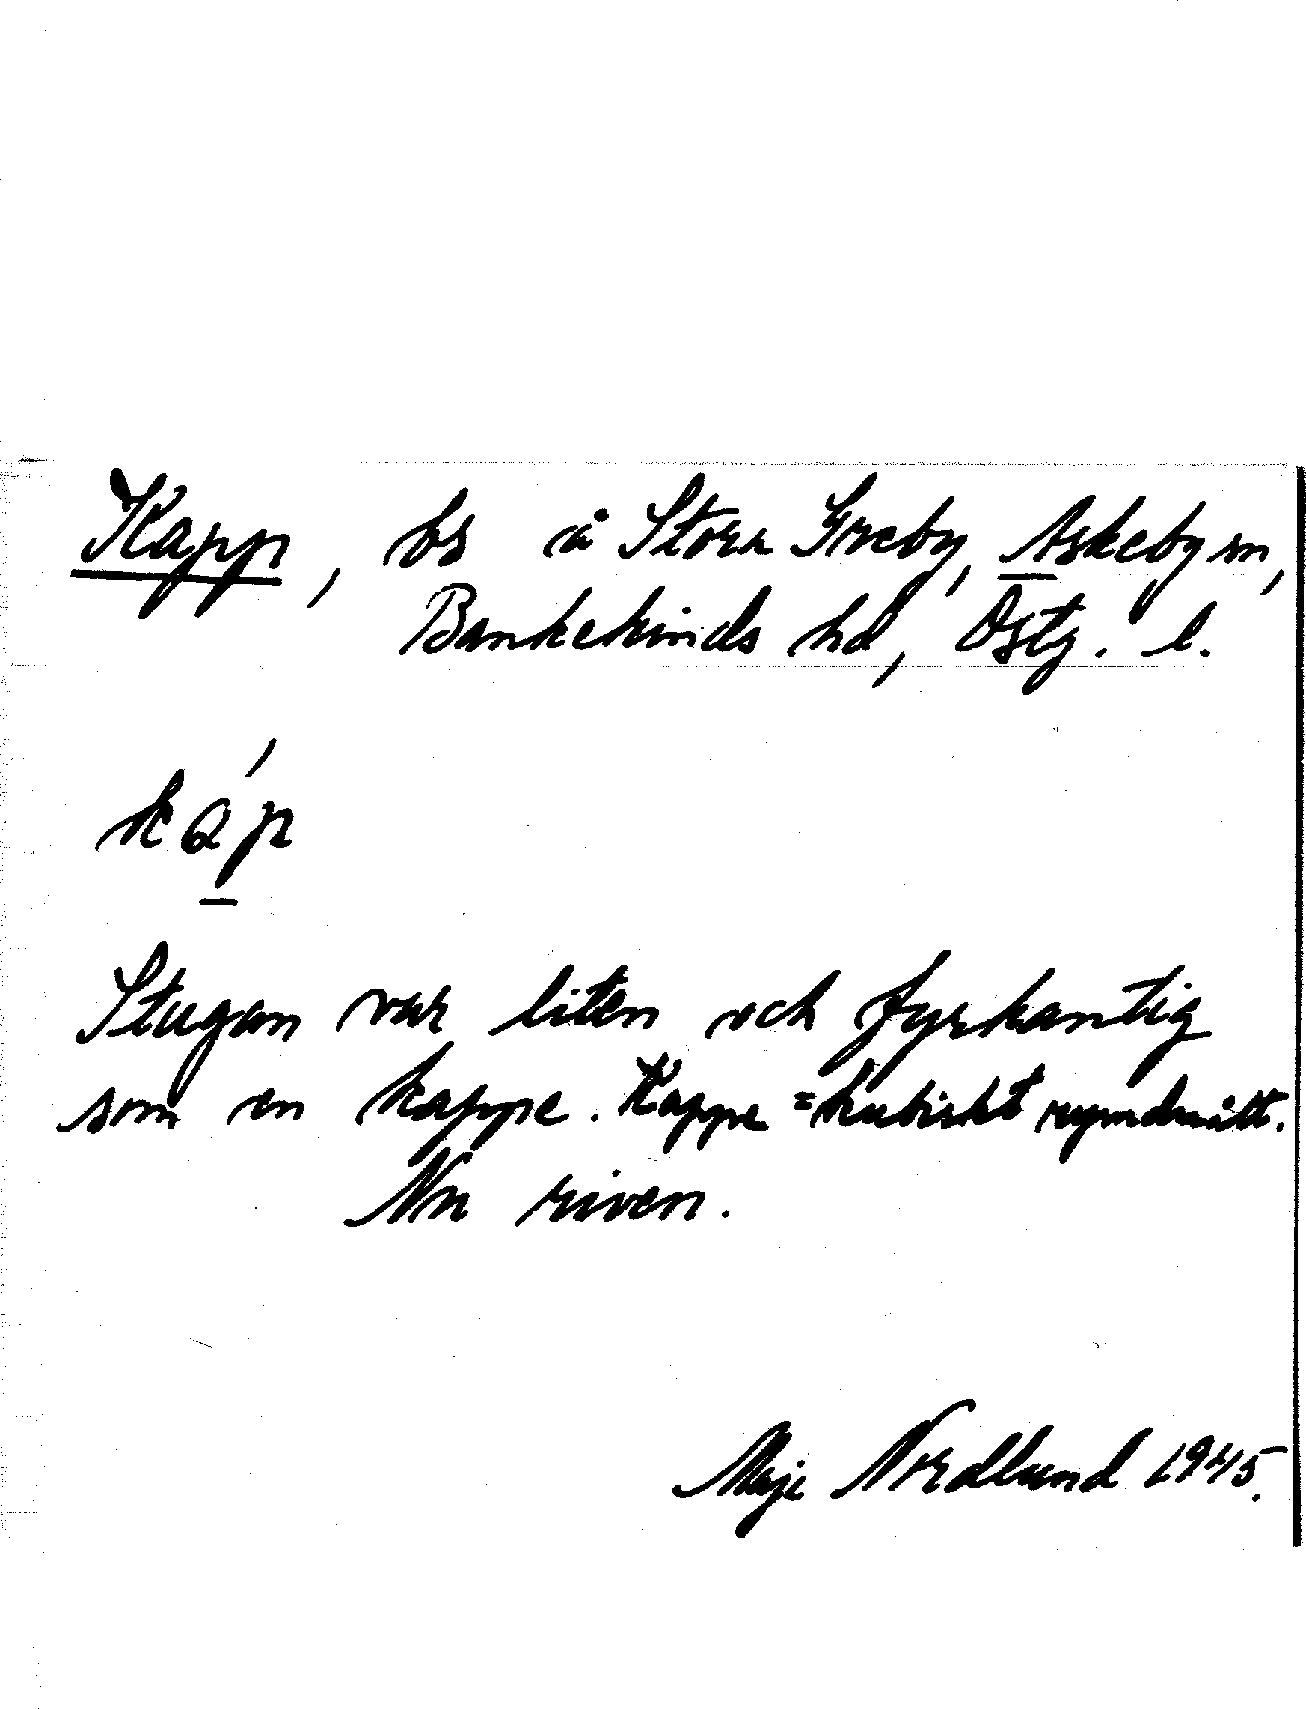 Kapp, bs å Stora Greby, Askeby sn,
Bankekinds hd, Östg. l.
káp
Stugan var liten och fyrkantig
som en kappe. Kappe = kubiskt rymdmått.
Nu riven.
Maje Nordlund 1945.